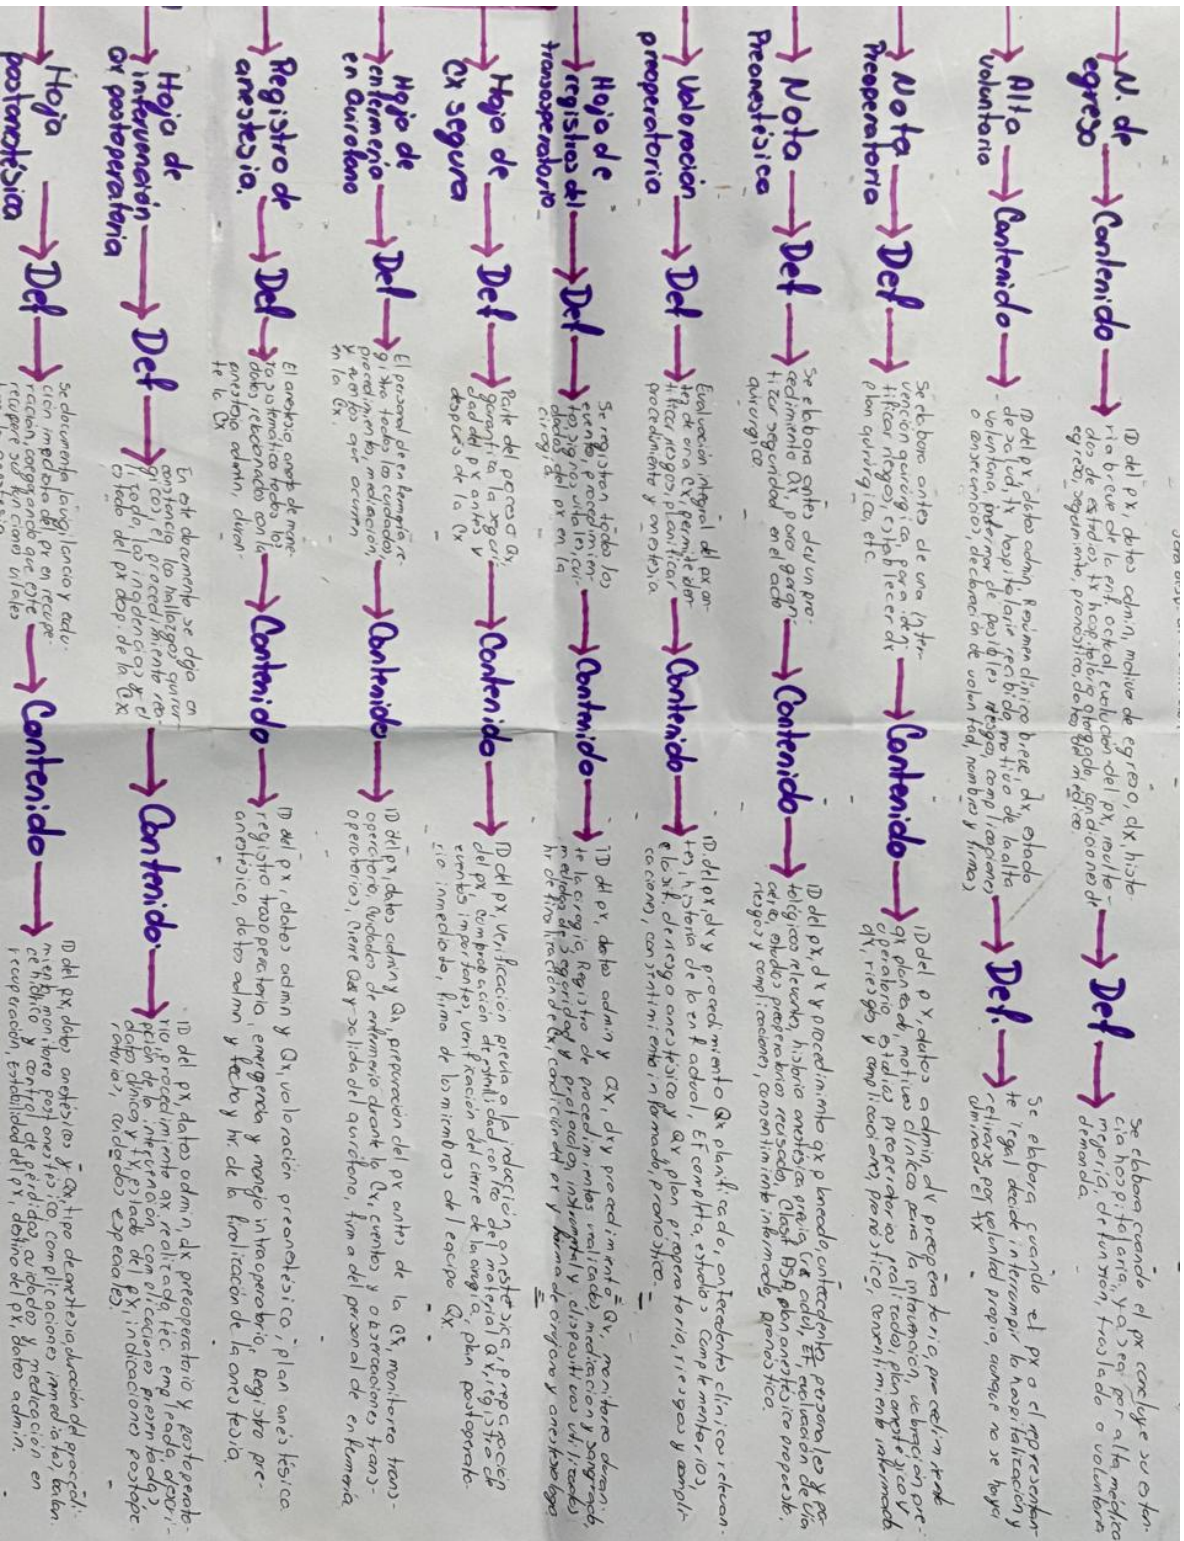 N. de
egreso
Contenido
ID del px, datos admin, motivo de egreso, dx, histo-
ria breve de la enf actual, evolución del px, resulta-
dos de estudios, tx hospitalario otorgado, condiciones de
egreso, seguimiento, pronóstico, datos del médico.
Def
Se elabora cuando el px concluye su estan-
cia hospitalaria, ya sea por alta médica
mejoría, defunción, traslado o voluntaria
demanda.
Alta
voluntaria
Contenido
ID del px, datos admn, Resúmen clínico breve, dx, estado
de salud, tx hospitalario recibido, motivo de la alta
voluntaria, informar de posibles riesgos, complicaciones
o consecuencias, declaración de voluntad, nombres y firmas
Def.
Se elabora cuando el px o el representan-
te legal decide interrumpir la hospitalización y
retirarse por voluntad propia, aunque no se haya
culminado el tx
Nota
Preoperatoria
Def
Se elabora antes de una inter-
vención quirúrgica, para iden
tificar riesgos, establecer dx
plan quirúrgico, etc.
Contenido
ID del px, datos admin, dx preoperatorio, procedimiento
qx planeado, motivos clínicos para la intervención, valoración pre-
operatorio, estudios preoperatorios realizados, plan anestésico y
qx, riesgos y complicaciones, pronóstico, consentimiento informado
Nota
Preanestésica
Def
Se elabora antes de un pro
cedimiento Qx, para garan-
tizar seguridad en el acto
quirurgico.
Contenido
ID del px, dx y procedimiento qx planeado, antecedentes personales y pa
tológicos relevantes, historia anestésica previa, EF, evaluación de vía
aérea, estudios preoperatorios revisados, Clasif ASA, plan anestésico propuesto,
riesgos y complicaciones, consentimiento informado, pronóstico.
Valoración
preoperatoria
Def
Evaluación integral del px an-
tes de una Cx, permite iden
tificar riesgos, planificar
procedimiento y anestesia
Contenido
ID, del px, dx y procedimiento Qx planificado, antecedentes clínicos relevan-
tes, historia de la enf actual, EF completa, estudios complementarios,
clasif. de riesgo anestésico y Qx, plan preoperatorio, riesgos y compli-
caciones, consentimiento informado, pronóstico.
Hoja de
registros del
transoperatorio
Def
Se registran todos los
eventos, procedimien-
tos, signos vitales, cui-
dados del px en la
cirugía
Contenido
ID del px, datos admin y Qx, dx y procedimiento Qx, monitoreo duran-
te la cirugía, Registro de procedimientos realizados, medicación y sangrado,
medidas de seguridad y protocolos, instrumental y dispositivos utilizados
hr de finalización de Cx, condición del px y firma de cirujano y anestesiologo
Hoja de
Cx segura
Def
Parte del proceso Qx,
garantiza la seguri-
dad del px antes y
después de la Cx
Contenido
ID del px, verificación previa a la inducción anestésica, preparación
del px, comprobación de esterilidad con tec del material Qx, registro de
eventos importantes, verificación del cierre de la cirugía, plan postoperato-
rio inmediato, firma de los miembros del equipo Qx
Hoja de
enfermería
en Quirofano
Def
El personal de enfermería re-
gistra todos los cuidados,
procedimientos, medicación,
y eventos que ocurren
en la Cx.
Contenido
ID del px, datos admin y Qx, preparación del px antes de la Cx, monitoreo trans-
operatorio, Cuidados de enfermería durante la Cx, eventos y observaciones trans-
operatorios, Cierre Qx y salida del quirófano, firma del personal de enfermería
Registro de
anestesia.
Def
El anestesio. anota de mane-
ra sistemática todos los
datos relacionados con la
anestesia admin, duran-
te la Cx
Contenido
ID del px, datos admin y Qx, valoración preanestésica, plan anestésico.
registro trasoperatorio, emergencia y manejo intraoperatorio, Registro pre-
anestésico, datos admn y fecha y hr de la finalización de la anestesia
Hoja de
intervención
Qx postoperatoria
Def
En este documento se deja en
constancia los hallazgos quirúr
gicos, el procedimiento rea-
lizado, las incidencias y el
estado del px desp. de la Cx
Contenido
ID del px, datos admin, dx preoperatorio y postoperato-
rio, procedimiento qx realizado, téc. empleada, descri-
pción de la intervención, complicaciones presentadas,
datos clínicos y tx, estado del px, indicaciones postope-
ratorios, cuidados especiales.
Hoja
postanestésica
Def
Se documenta la vigilancia y
ción inmediata del px en recupe-
ración, asegurando que este
recupere sus funciones vitales
Contenido
ID del px, datos anestésicos y Qx, tipo de anestesia, duración del procedi-
miento, monitoreo postanestésico, complicaciones inmediatas, balan
ce hídrico y control de pérdidas, cuidados y medicación en
recuperación, estabilidad del px, destino del px, datos admin.